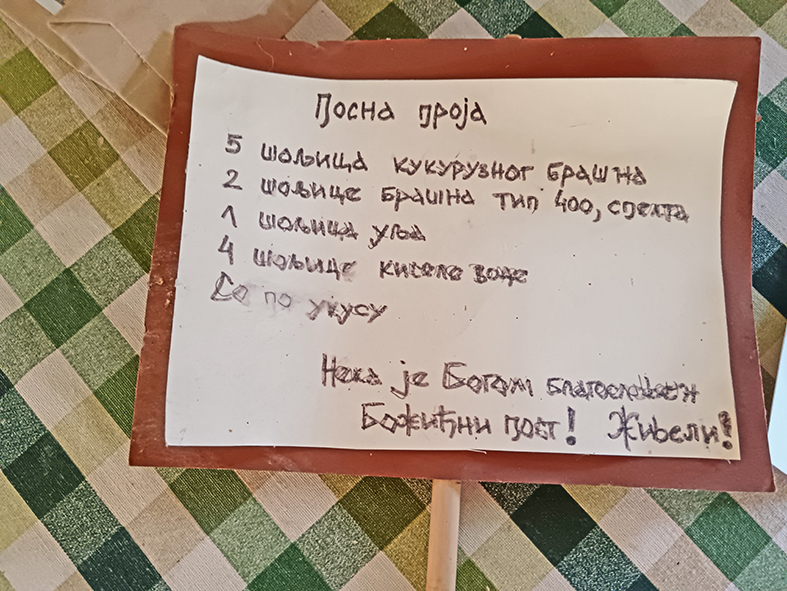 Посна проја
5 шољица кукурузног брашна
2 шољице брашна тип 400, спелта
1 шољица уља
4 шољице киселе воде
Со по укусу
Нека је Богом благословен
Божићни пост! Живели!